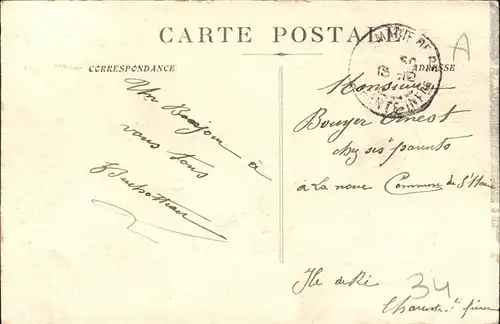 CARTE POSTALE
CORRESPONDANCE
ADRESSE
Un Bonjour à
vous tous
Monsieur
Bouyer Ernest
chez ses parents
à La noue Commune de Ste
Ile de Ré
34
A